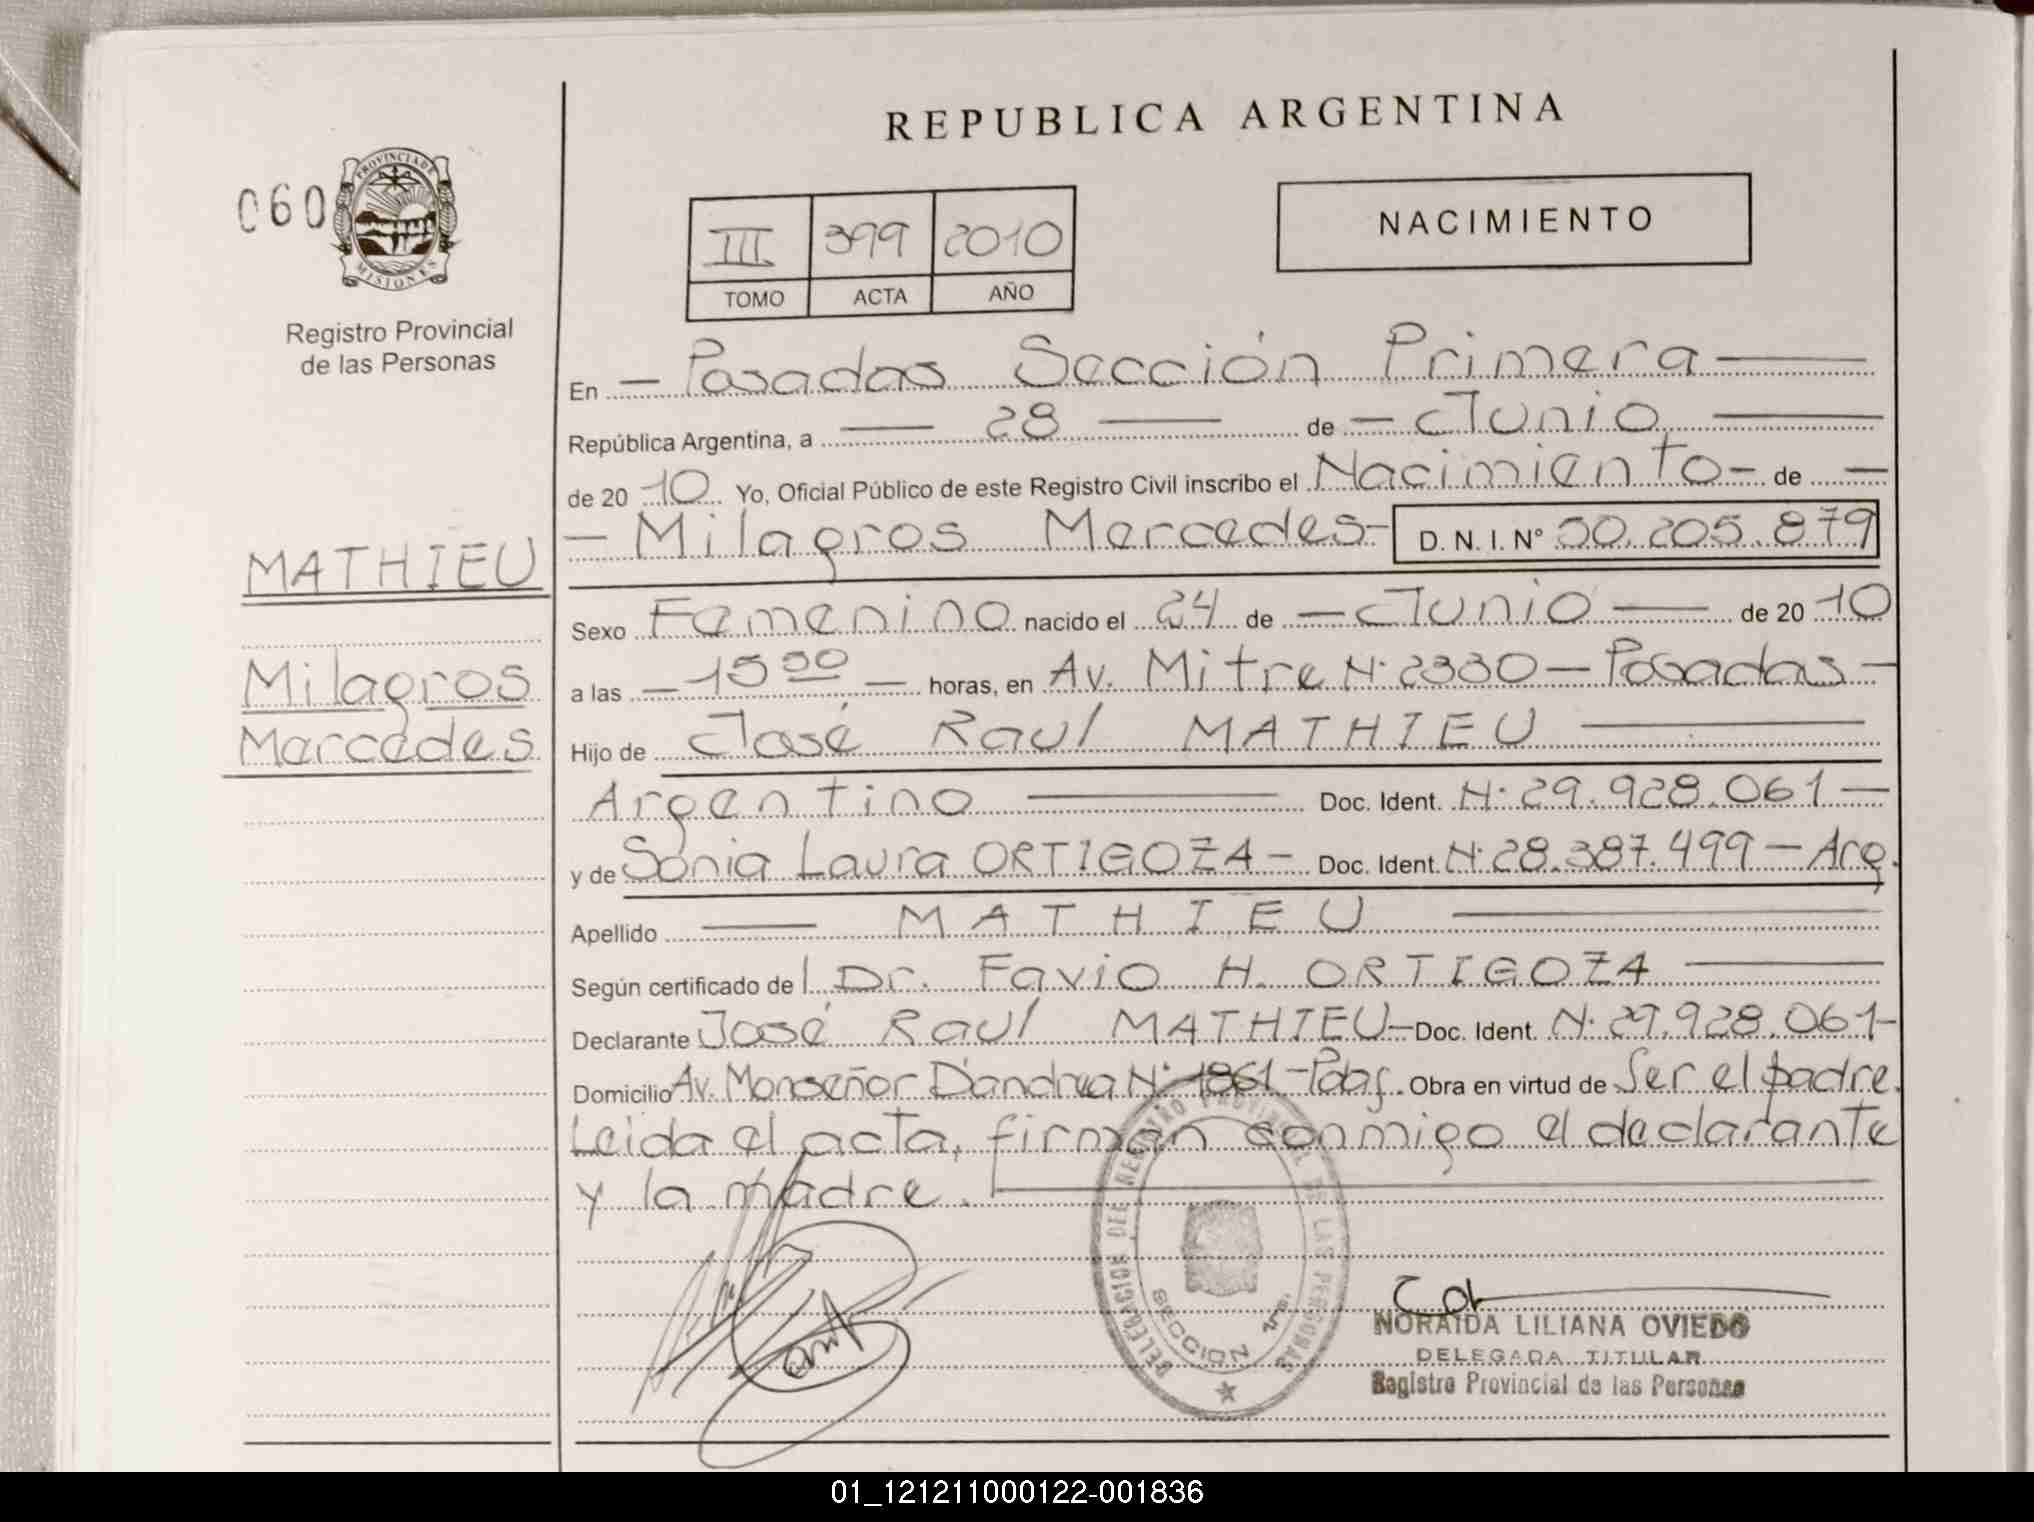 REPUBLICA ARGENTINA
060
PROVINCIA DE MISIONES
Registro Provincial
de las Personas
III 399 2010
TOMO ACTA AÑO
NACIMIENTO
En - Posadas Sección Primera
República Argentina, a 28 de - Junio
de 20 10 Yo, Oficial Público de este Registro Civil inscribo el Nacimiento - de -
- Milagros Mercedes - D. N. I. N° 50.205.879
MATHIEU
Milagros
Mercedes
Sexo Femenino nacido el 24 de - Junio de 20 10
a las - 15 50 - horas, en Av. Mitre N: 2330 - Posadas -
Hijo de José Raul MATHIEU
Argentino Doc. Ident. N: 29.928.061 -
y de Sonia Laura ORTIGOZA - Doc. Ident. N: 28.387.499 - Arg.
Apellido MATHIEU
Según certificado de Dr. Favio H. ORTIGOZA
Declarante José Raul MATHIEU - Doc. Ident. N: 29.928.061 -
Domicilio Av. Monseñor D'andrea N: 1861 - Pdas. Obra en virtud de Ser el padre.
Leida el acta, firman conmigo el declarante
y la madre.
DELEGACION DEL REGISTRO PROVINCIAL DE LAS PERSONAS
SECCION 1ra.
NORAIDA LILIANA OVIEDO
DELEGADA TITULAR
Registro Provincial de las Personas
01_121211000122-001836